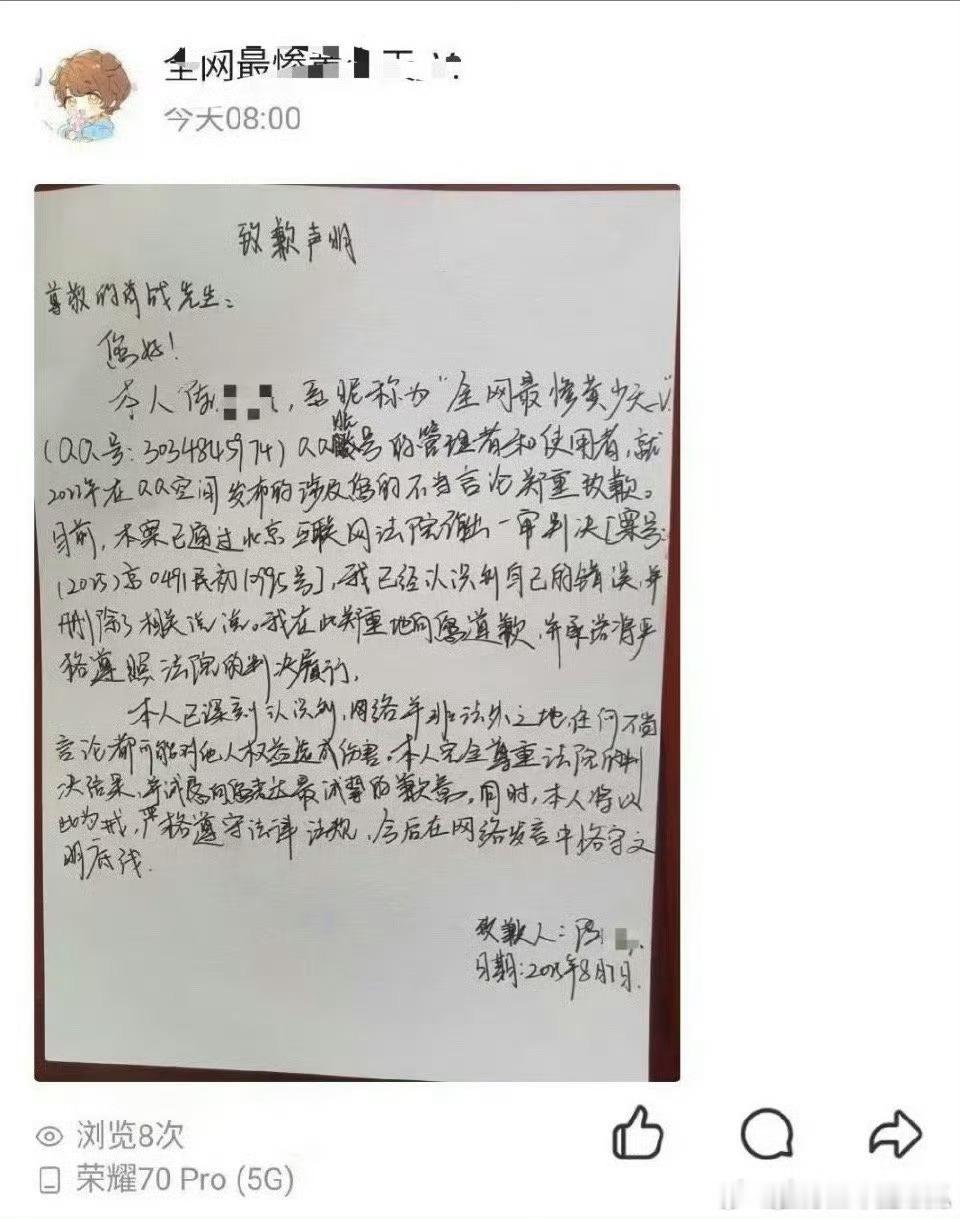 全网最惨
今天08:00
致歉声明
尊敬的肖战先生：
您好！
本人陈，系昵称为“全网最惨黄少天”
（QQ号：3034845974）QQ账号的管理者和使用者，就
年在QQ空间发布的涉及您的不当言论郑重致歉。
目前，本案已通过北京互联网法院作出一审判决[案号：
（2025）京0491民初号]，我已经认识到自己的错误，并
删除了相关说说。我在此郑重地向您道歉，并承诺将严
格遵照法院的判决履行。
本人已深刻认识到，网络并非法外之地，任何不当
言论都可能对他人权益造成伤害。本人完全尊重法院的判
决结果，并诚恳向您表达最诚挚的歉意。同时，本人将以
此为戒，严格遵守法律法规，今后在网络发言中恪守文
明底线。
致歉人：陈
日期：2025年8月7日.
浏览8次
荣耀70 Pro (5G)